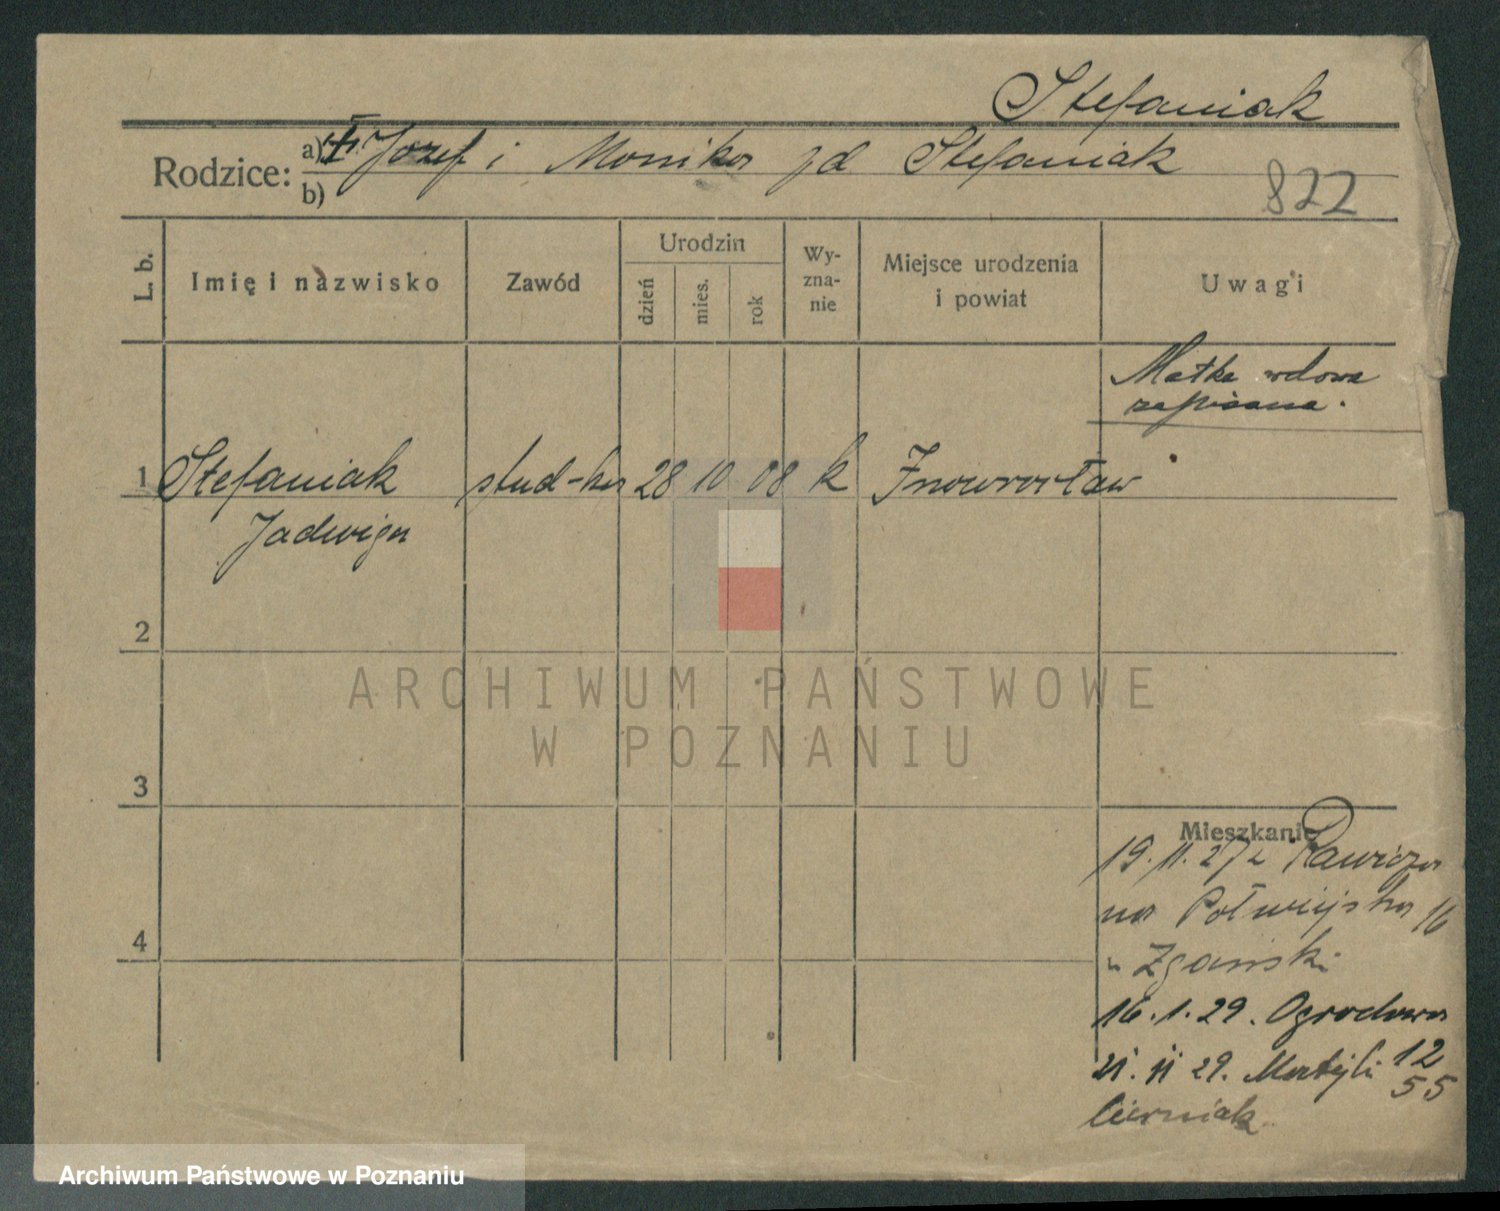 Stefaniak
Rodzice: a) Józef i Monika zd Stefaniak
b)
822
L. b. Imię i nazwisko Zawód Urodzin dzień mies. rok Wyznanie Miejsce urodzenia i powiat Uwagi
Matka wdowa
zapisana.
1 Stefaniak stud-ka 28 10 08 k Inowrocław
Jadwiga
2
3
4
Mieszkanie
19. 11. 27 z Rawicza
na Półwiejska 16
u Zgański
16. 1. 29. Ogrodowa 12
21. 11 29. Matejki 55
Cierniak
ARCHIWUM PAŃSTWOWE
W POZNANIU
Archiwum Państwowe w Poznaniu